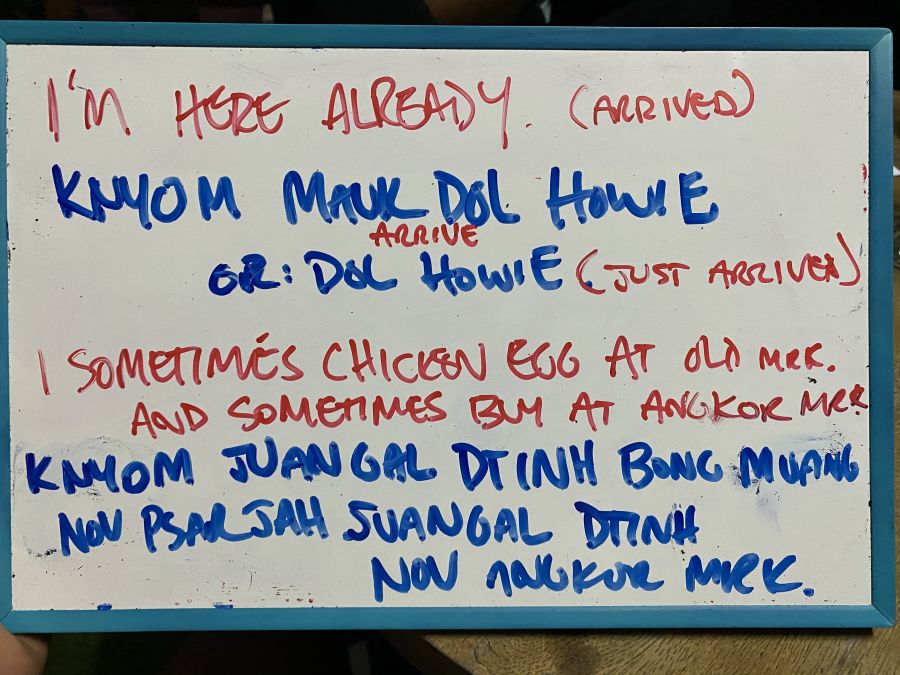 I'M HERE ALREADY. (ARRIVED)
KNYOM MAUK DOL HOWIE
ARRIVE
OR: DOL HOWIE (JUST ARRIVED)
I SOMETIMES CHICKEN EGG AT OLD MRK.
AND SOMETIMES BUY AT ANGKOR MRK
KNYOM JUANGAL DTINH BONG MUANG
NOV PSARJAH JUANGAL DTINH
NOV ANGKOR MRK.